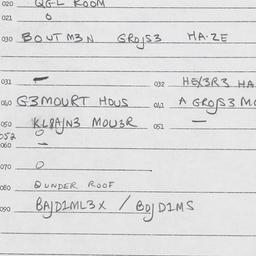 020 QGL ROOM
021 0
030 BOUTM3N GROJS3 HA-ZE
031 – 032 HEX3R3 HA
040 G3MOURT HOUS 041 A GROJS3 MO
050 KLPAJN3 MOU3R 051 –
052 0
060 –
070 0
080 QUNDER ROOF
090 BAJD1ML3X / BOJD1MS